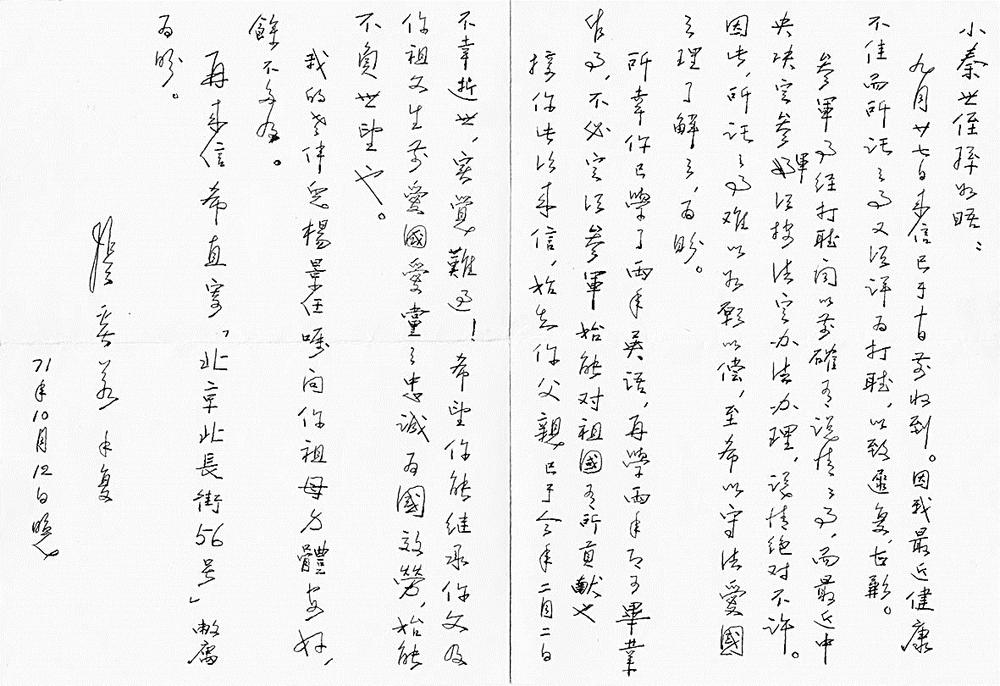 小秦世侄孫如晤：
九月廿七日来信已于十日前收到。因我最近健康
不佳而所託之事又須詳为打聴，以致遲复，古歉。
参軍事经打聴问以前確有説情之事，而最近中
央决定参軍须按法定办法办理，説情绝对不许。
因此，所託之事难以如願以偿，至希以守法爱國
之理了解之，为盼。
所幸你已學了两年英语，再學两年即可畢業
作事，不必定须参軍始能对祖國有所貢献也
接你此次来信，始知你父親已于今年二月二日
不幸逝世，实覺難过！希望你能继承你父及
你祖父生前愛國愛黨之忠诚为國效勞，始能
不負世望也。
我的老伴児楊景任嘱问你祖母方體安好，
餘不多及。
再来信希直寄「北京北長街56号」敝寓
为盼。
張奚若手复
71年10月12日晚